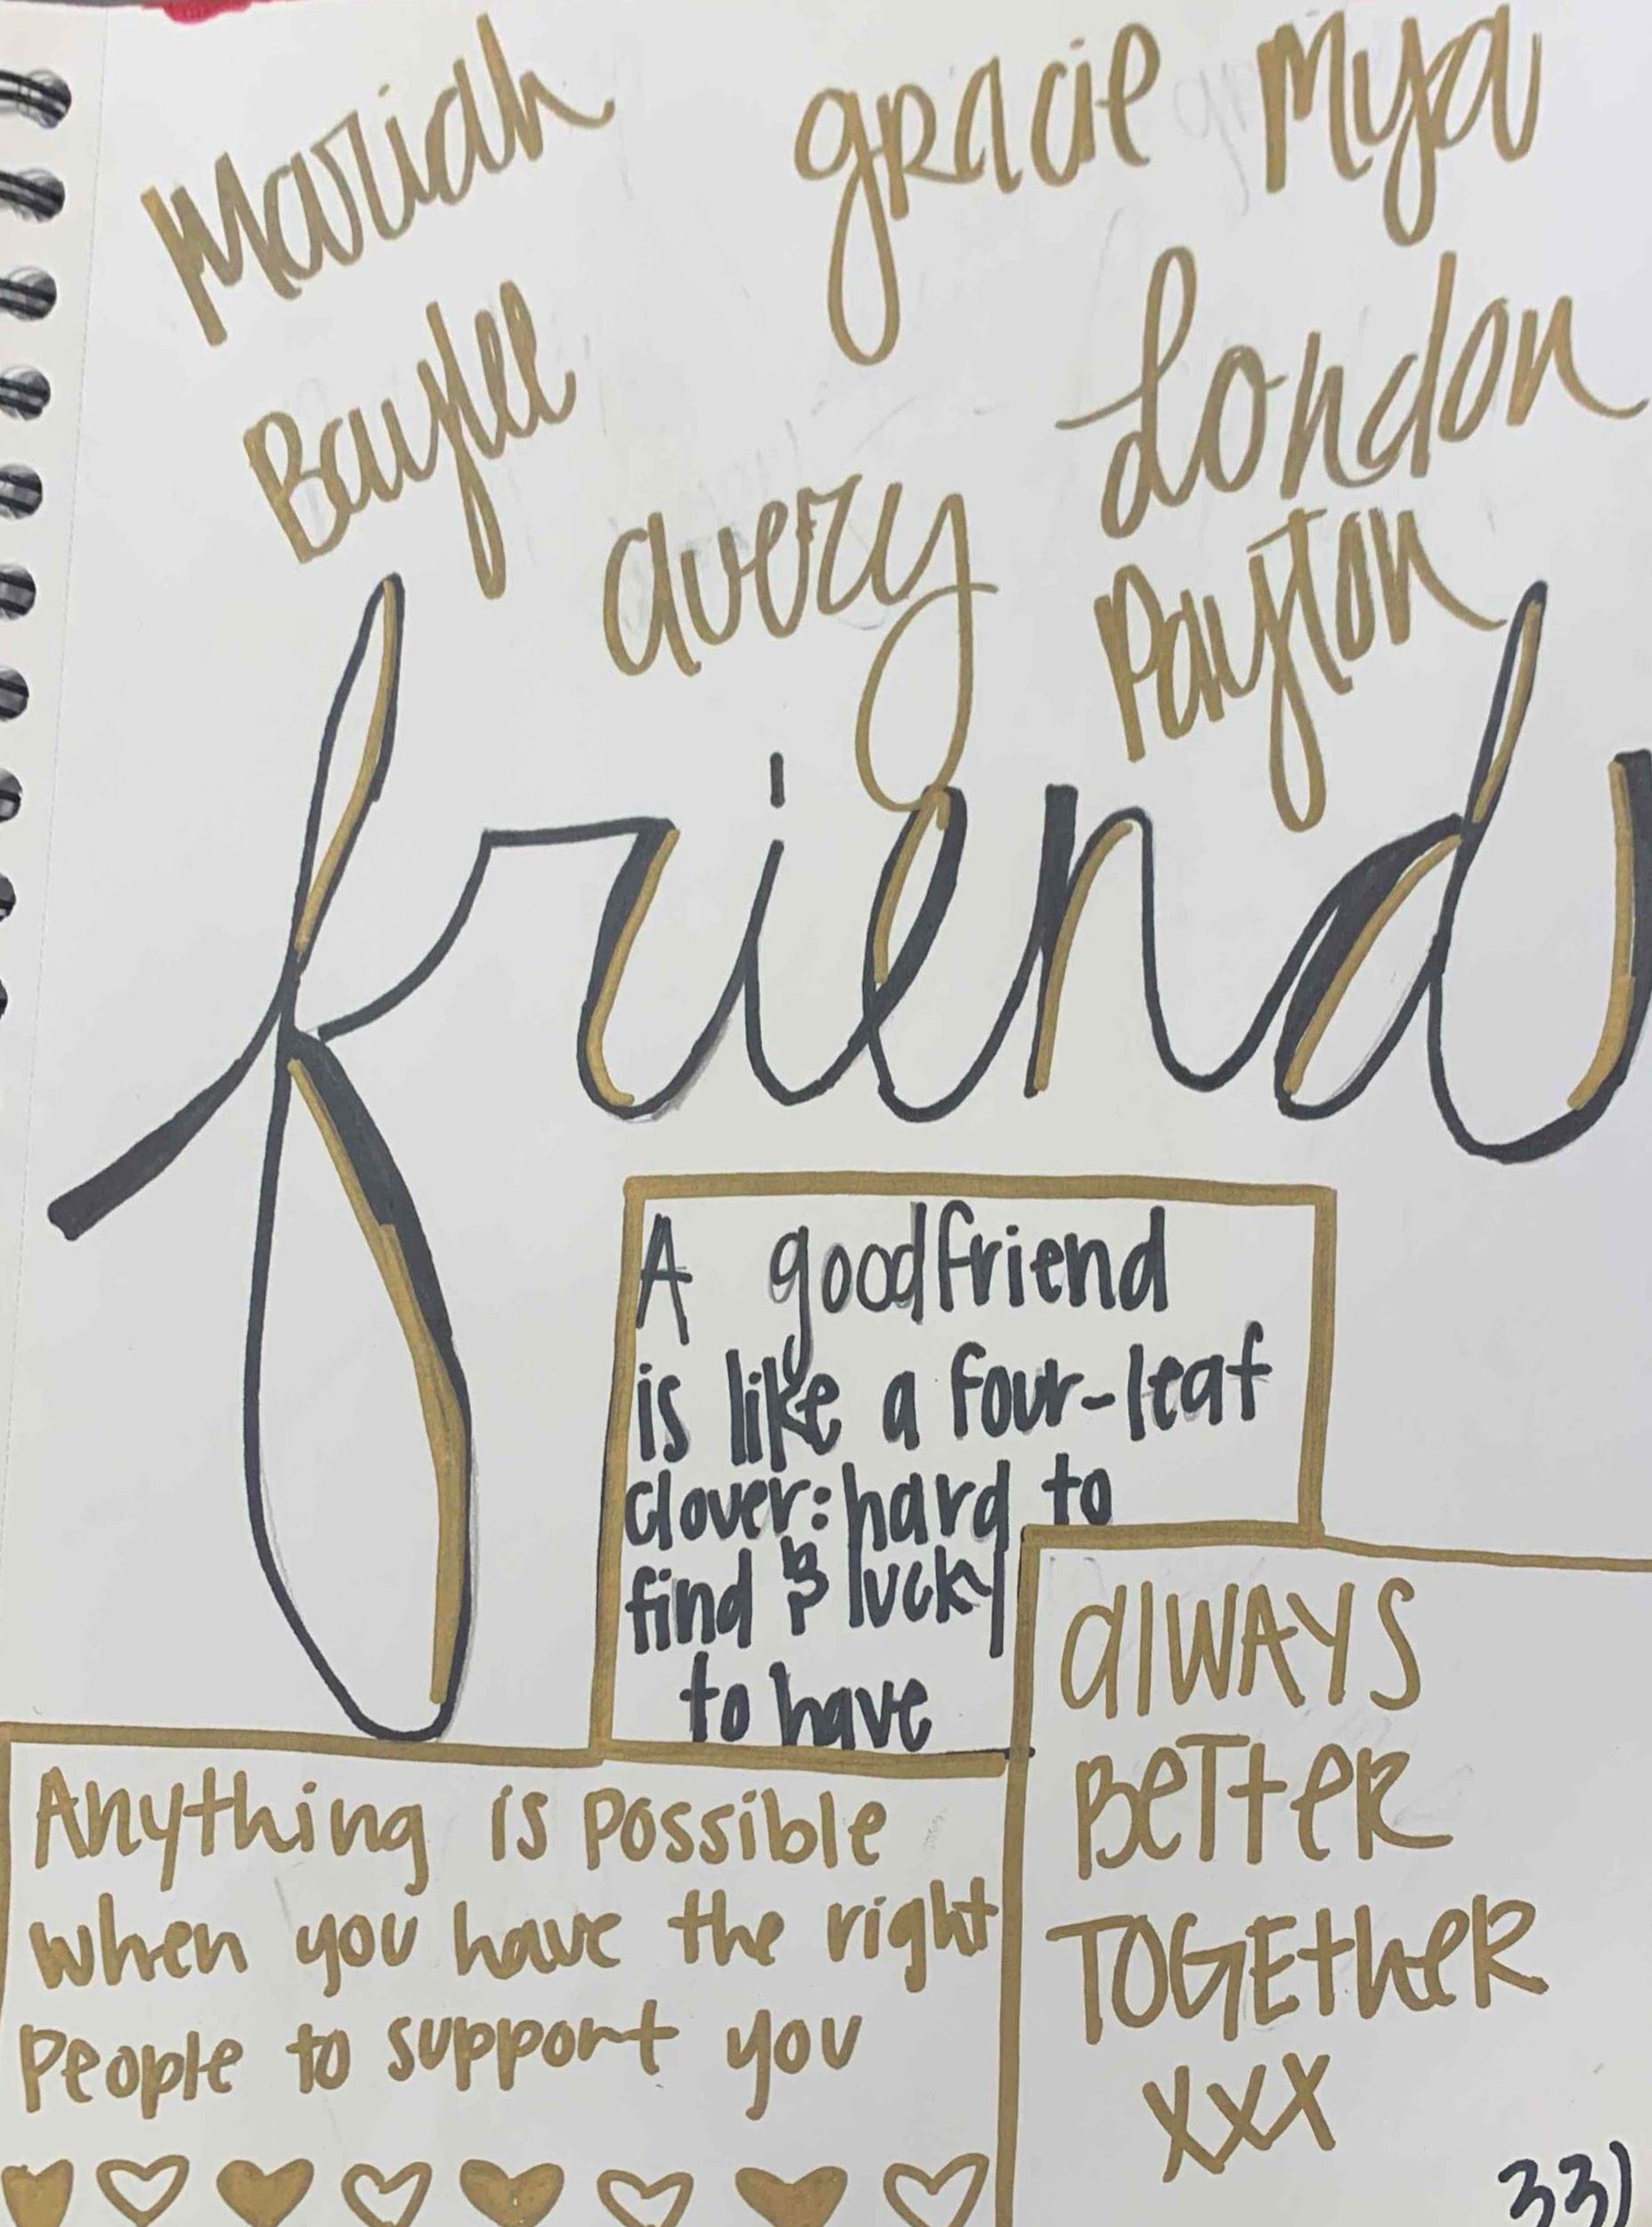 Mariah gracie Mya
Baylee London
avery Payton
friend
A good friend
is like a four-leaf
clover: hard to
find & lucky
to have
Anything is possible
when you have the right
people to support you
alWAYS
BeTTeR
TOGEtheR
xxx
33)